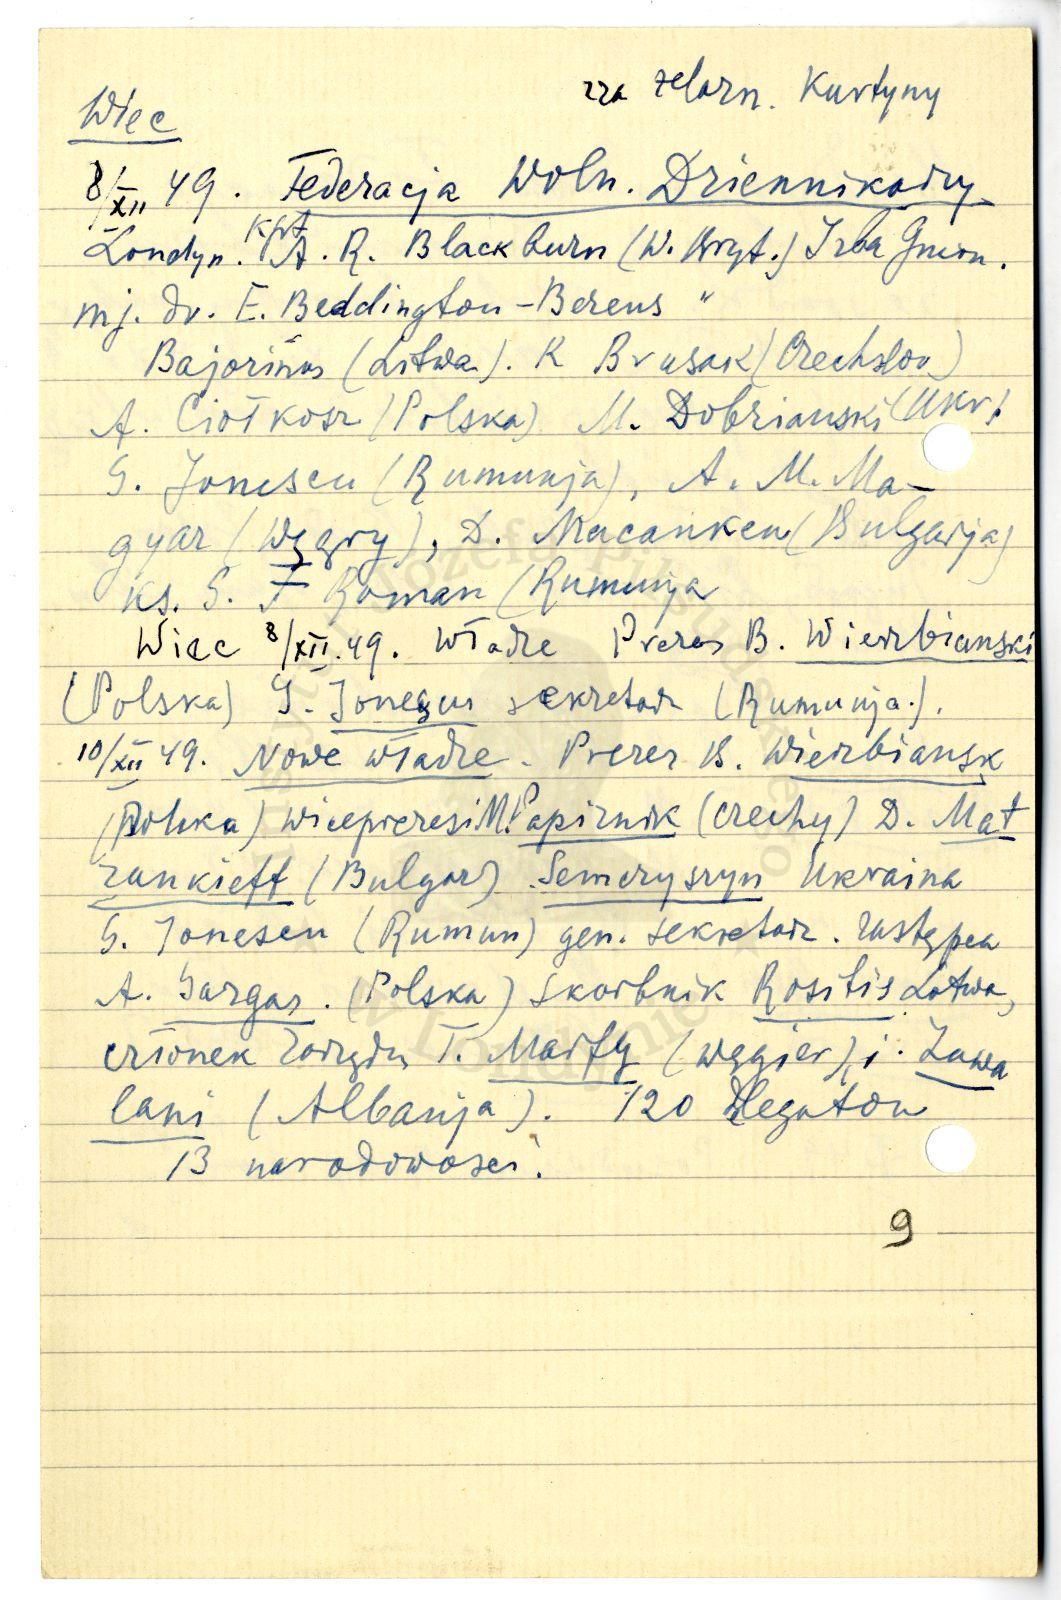 zza żelazn. Kurtyny
Wiec
8/XII 49. Federacja Woln. Dziennikarzy
Londyn. kpt A. R. Blackburn (W. Bryt.) Izba Gmin.
mj. dr. E. Beddington-Berens "
Bajorinas (Litwa). K Brusak (Czechslow)
A. Ciołkosz (Polska) M. Dobrianski (Ukr.)
G. Jonescu (Rumunja), A. M. Ma-
gyar (Węgry), D. Macanken (Bulgarja)
ks. G. F Roman (Rumunja
Wiec 8/XII.49. Władze Prezes B. Wierzbianski
(Polska) G. Jonesus sekretarz (Rumunja.).
10/XII 49. Nowe władze. Prezes B. Wierzbiansk
(Polska) wiceprezesi M. Papirnik (Czechy) D. Mat
zankieff (Bulgar) Semczyszyn Ukraina
G. Jonescu (Rumun) gen. sekretarz. zastępca
A. Gargas. (Polska) Skarbnik Rositis Łotwa,
członek zarządu T. Marffy (węgier), i. Zawa
lani (Albanja). 120 delegatow
13 narodowosci.
9
Józefa Piłsudskiego
w Londynie